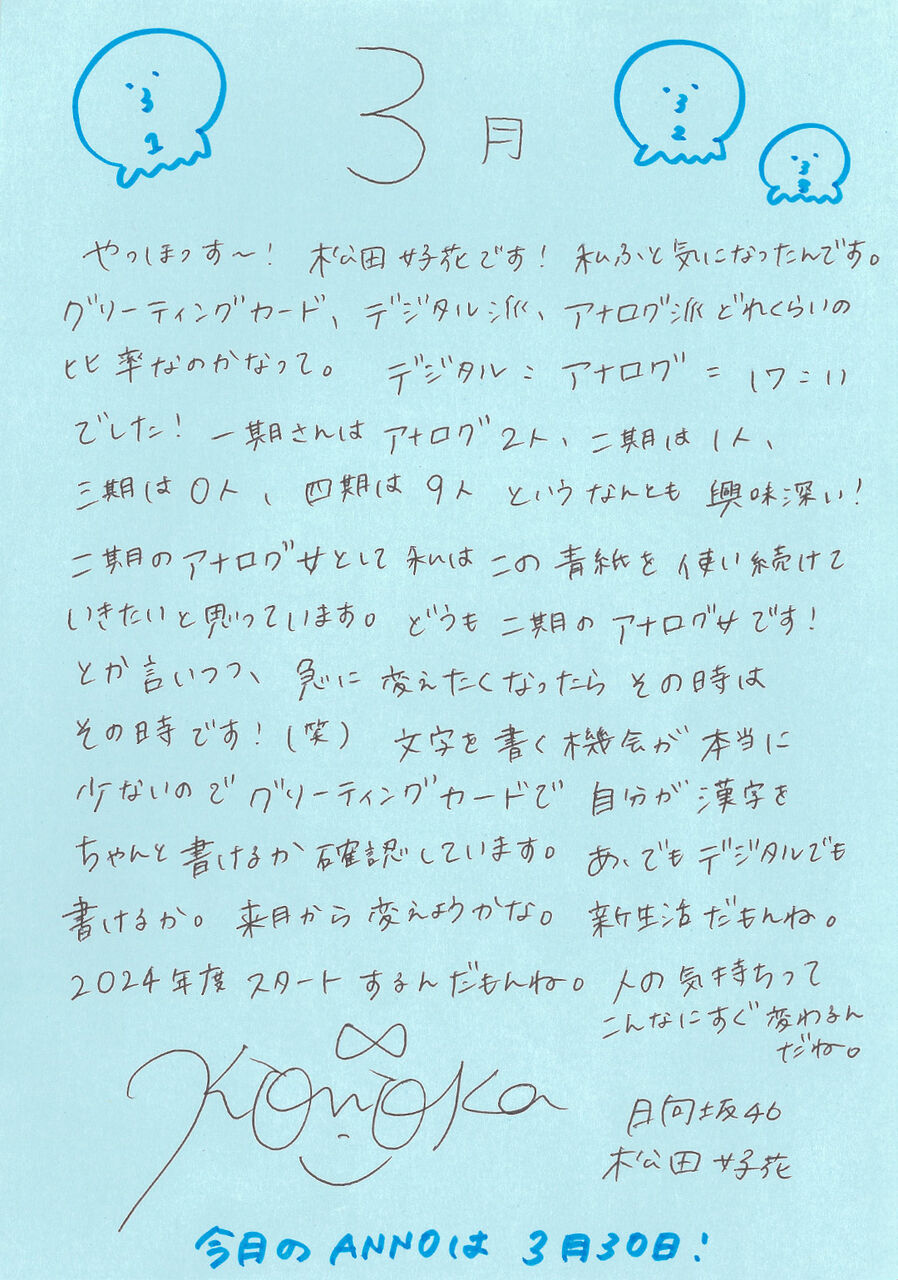 3月
1
2
3
やっほっす〜！ 松田好花です！ 私ふと気になったんです。
グリーティングカード、デジタル派、アナログ派どれくらいの
比率なのかなって。 デジタル：アナログ＝17：11
でした！ 一期さんはアナログ2人、二期は1人、
三期は0人、四期は9人というなんとも興味深い！
二期のアナログ女として私はこの青紙を使い続けて
いきたいと思っています。どうも二期のアナログ女です！
とか言いつつ、急に変えたくなったらその時は
その時です！(笑) 文字を書く機会が本当に
少ないのでグリーティングカードで自分が漢字を
ちゃんと書けるか確認しています。あ、でもデジタルでも
書けるか。来月から変えようかな。新生活だもんね。
2024年度スタートするんだもんね。人の気持ちって
こんなにすぐ変わるん
だね。
Konoka
日向坂46
松田好花
今月のANNOは3月30日！